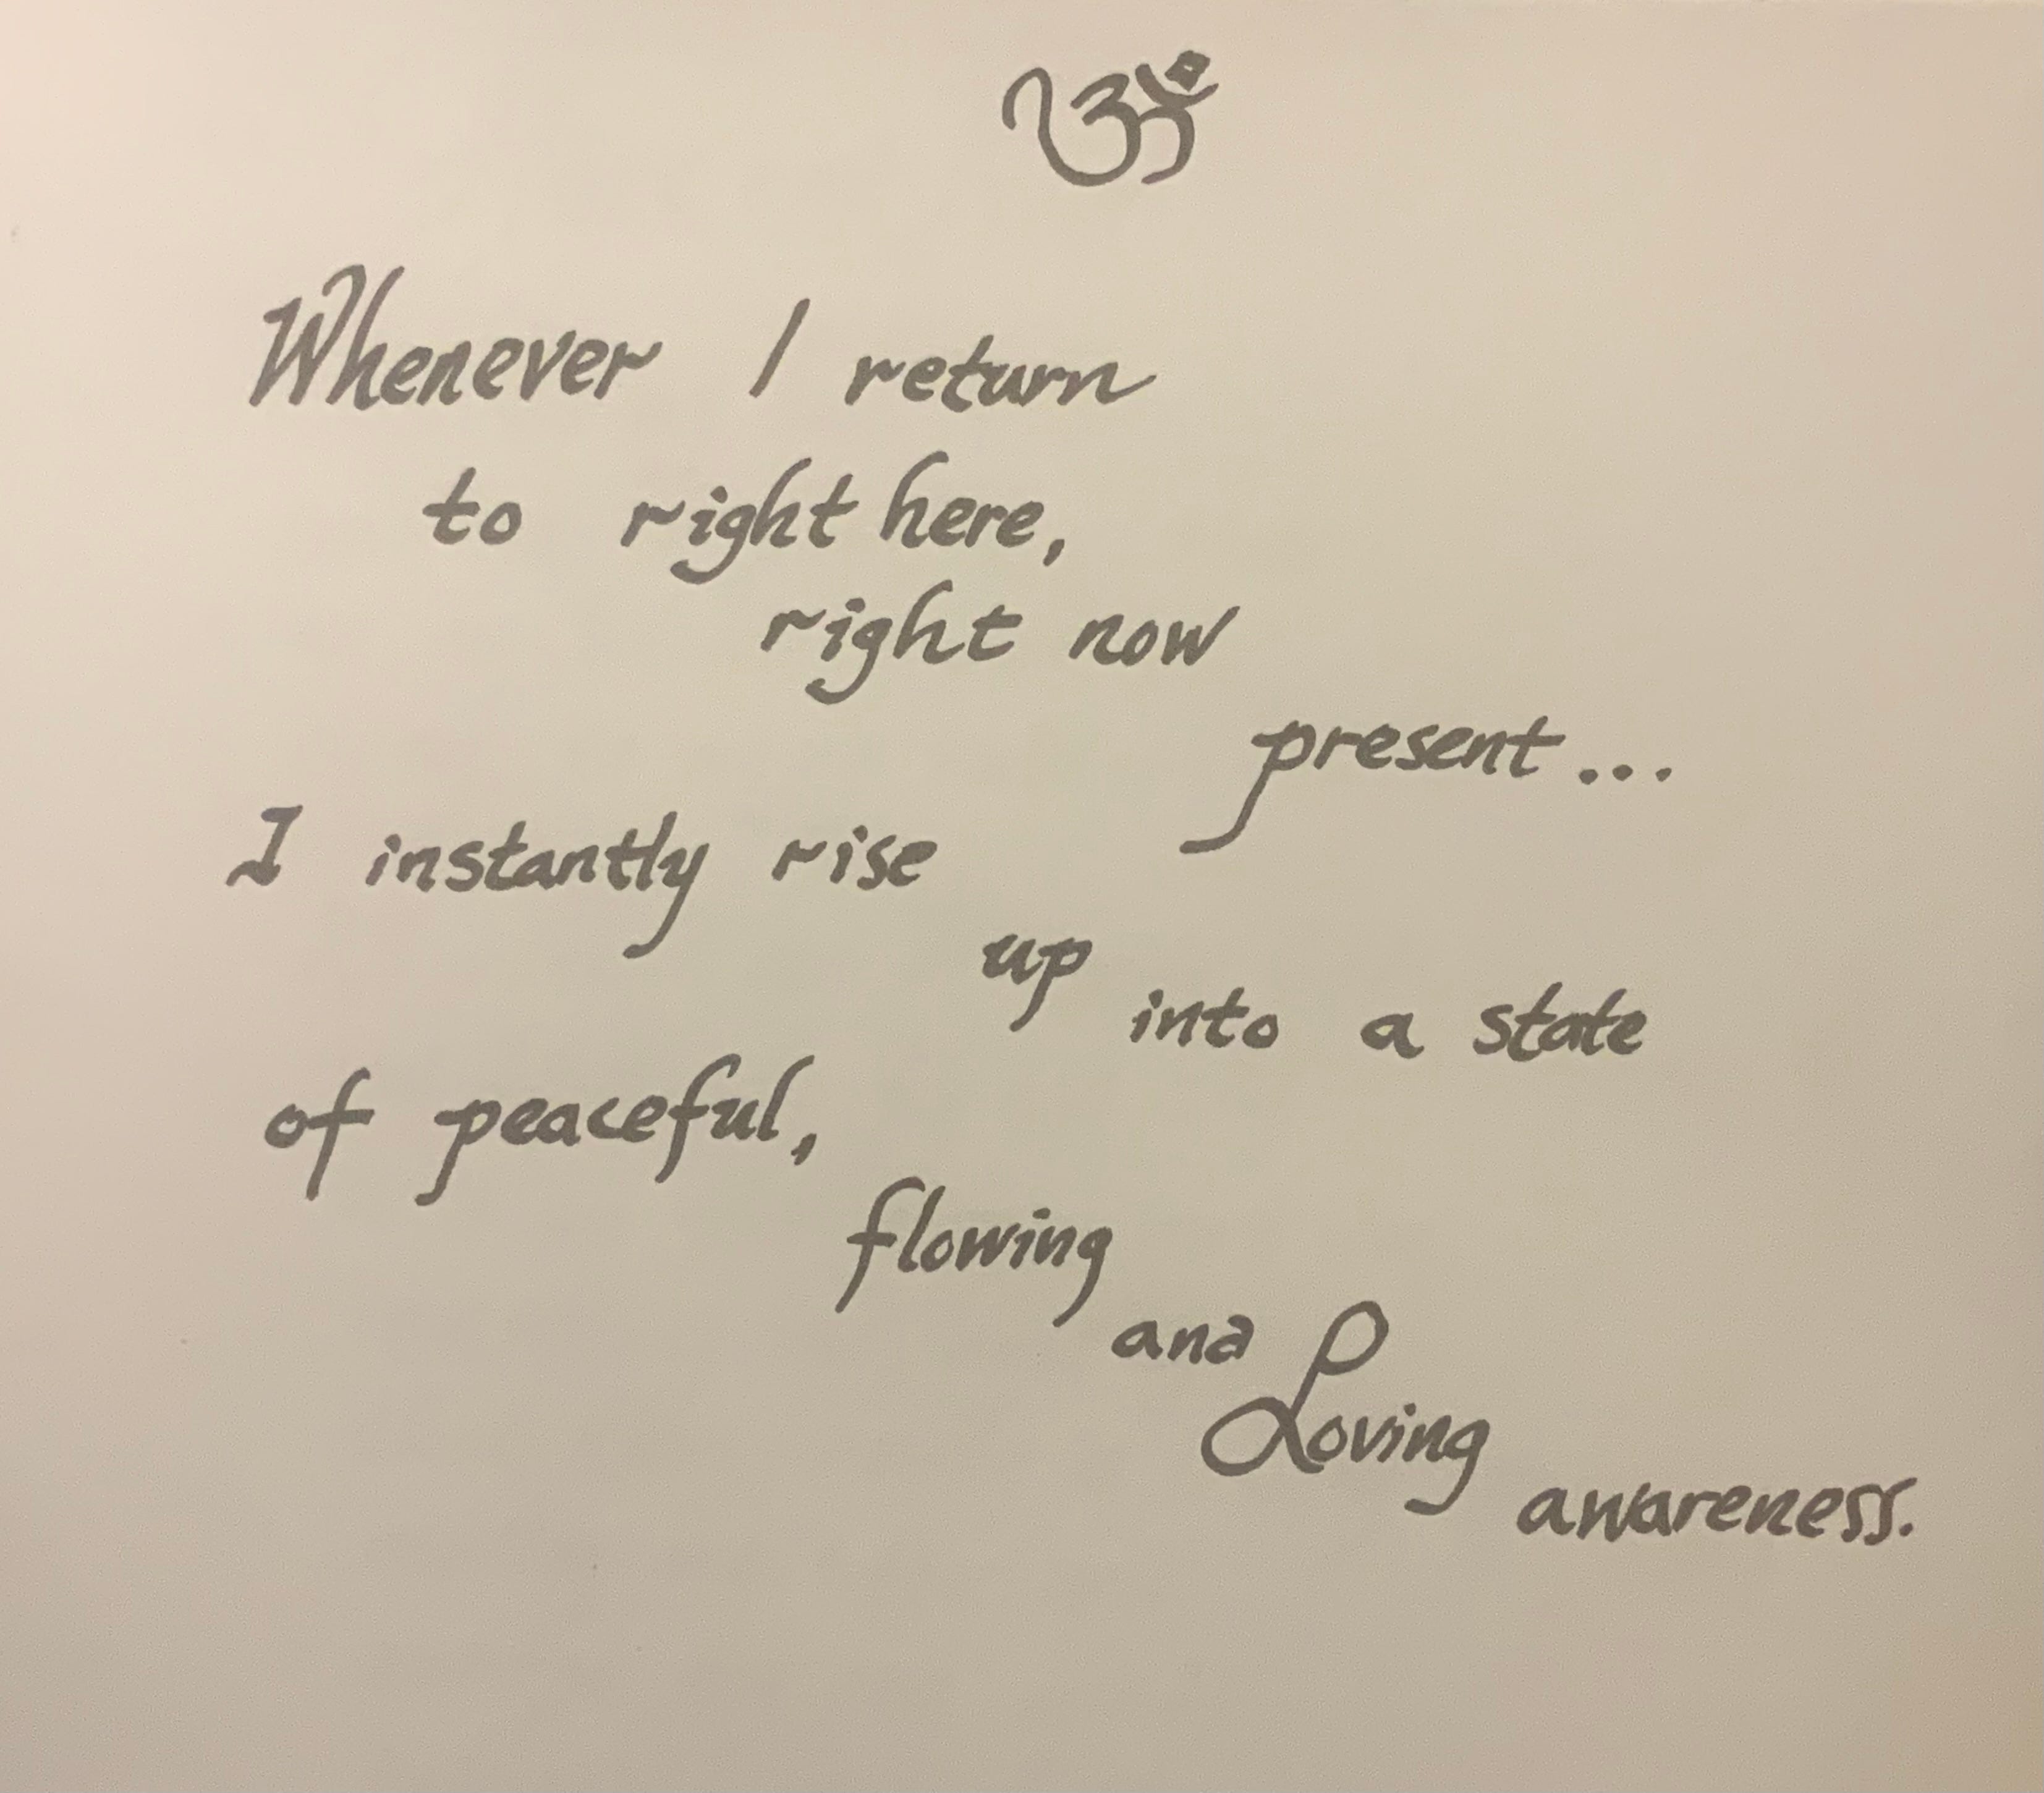 ॐ
Whenever I return
to right here,
right now
present...
I instantly rise
up into a state
of peaceful,
flowing
and
Loving
awareness.